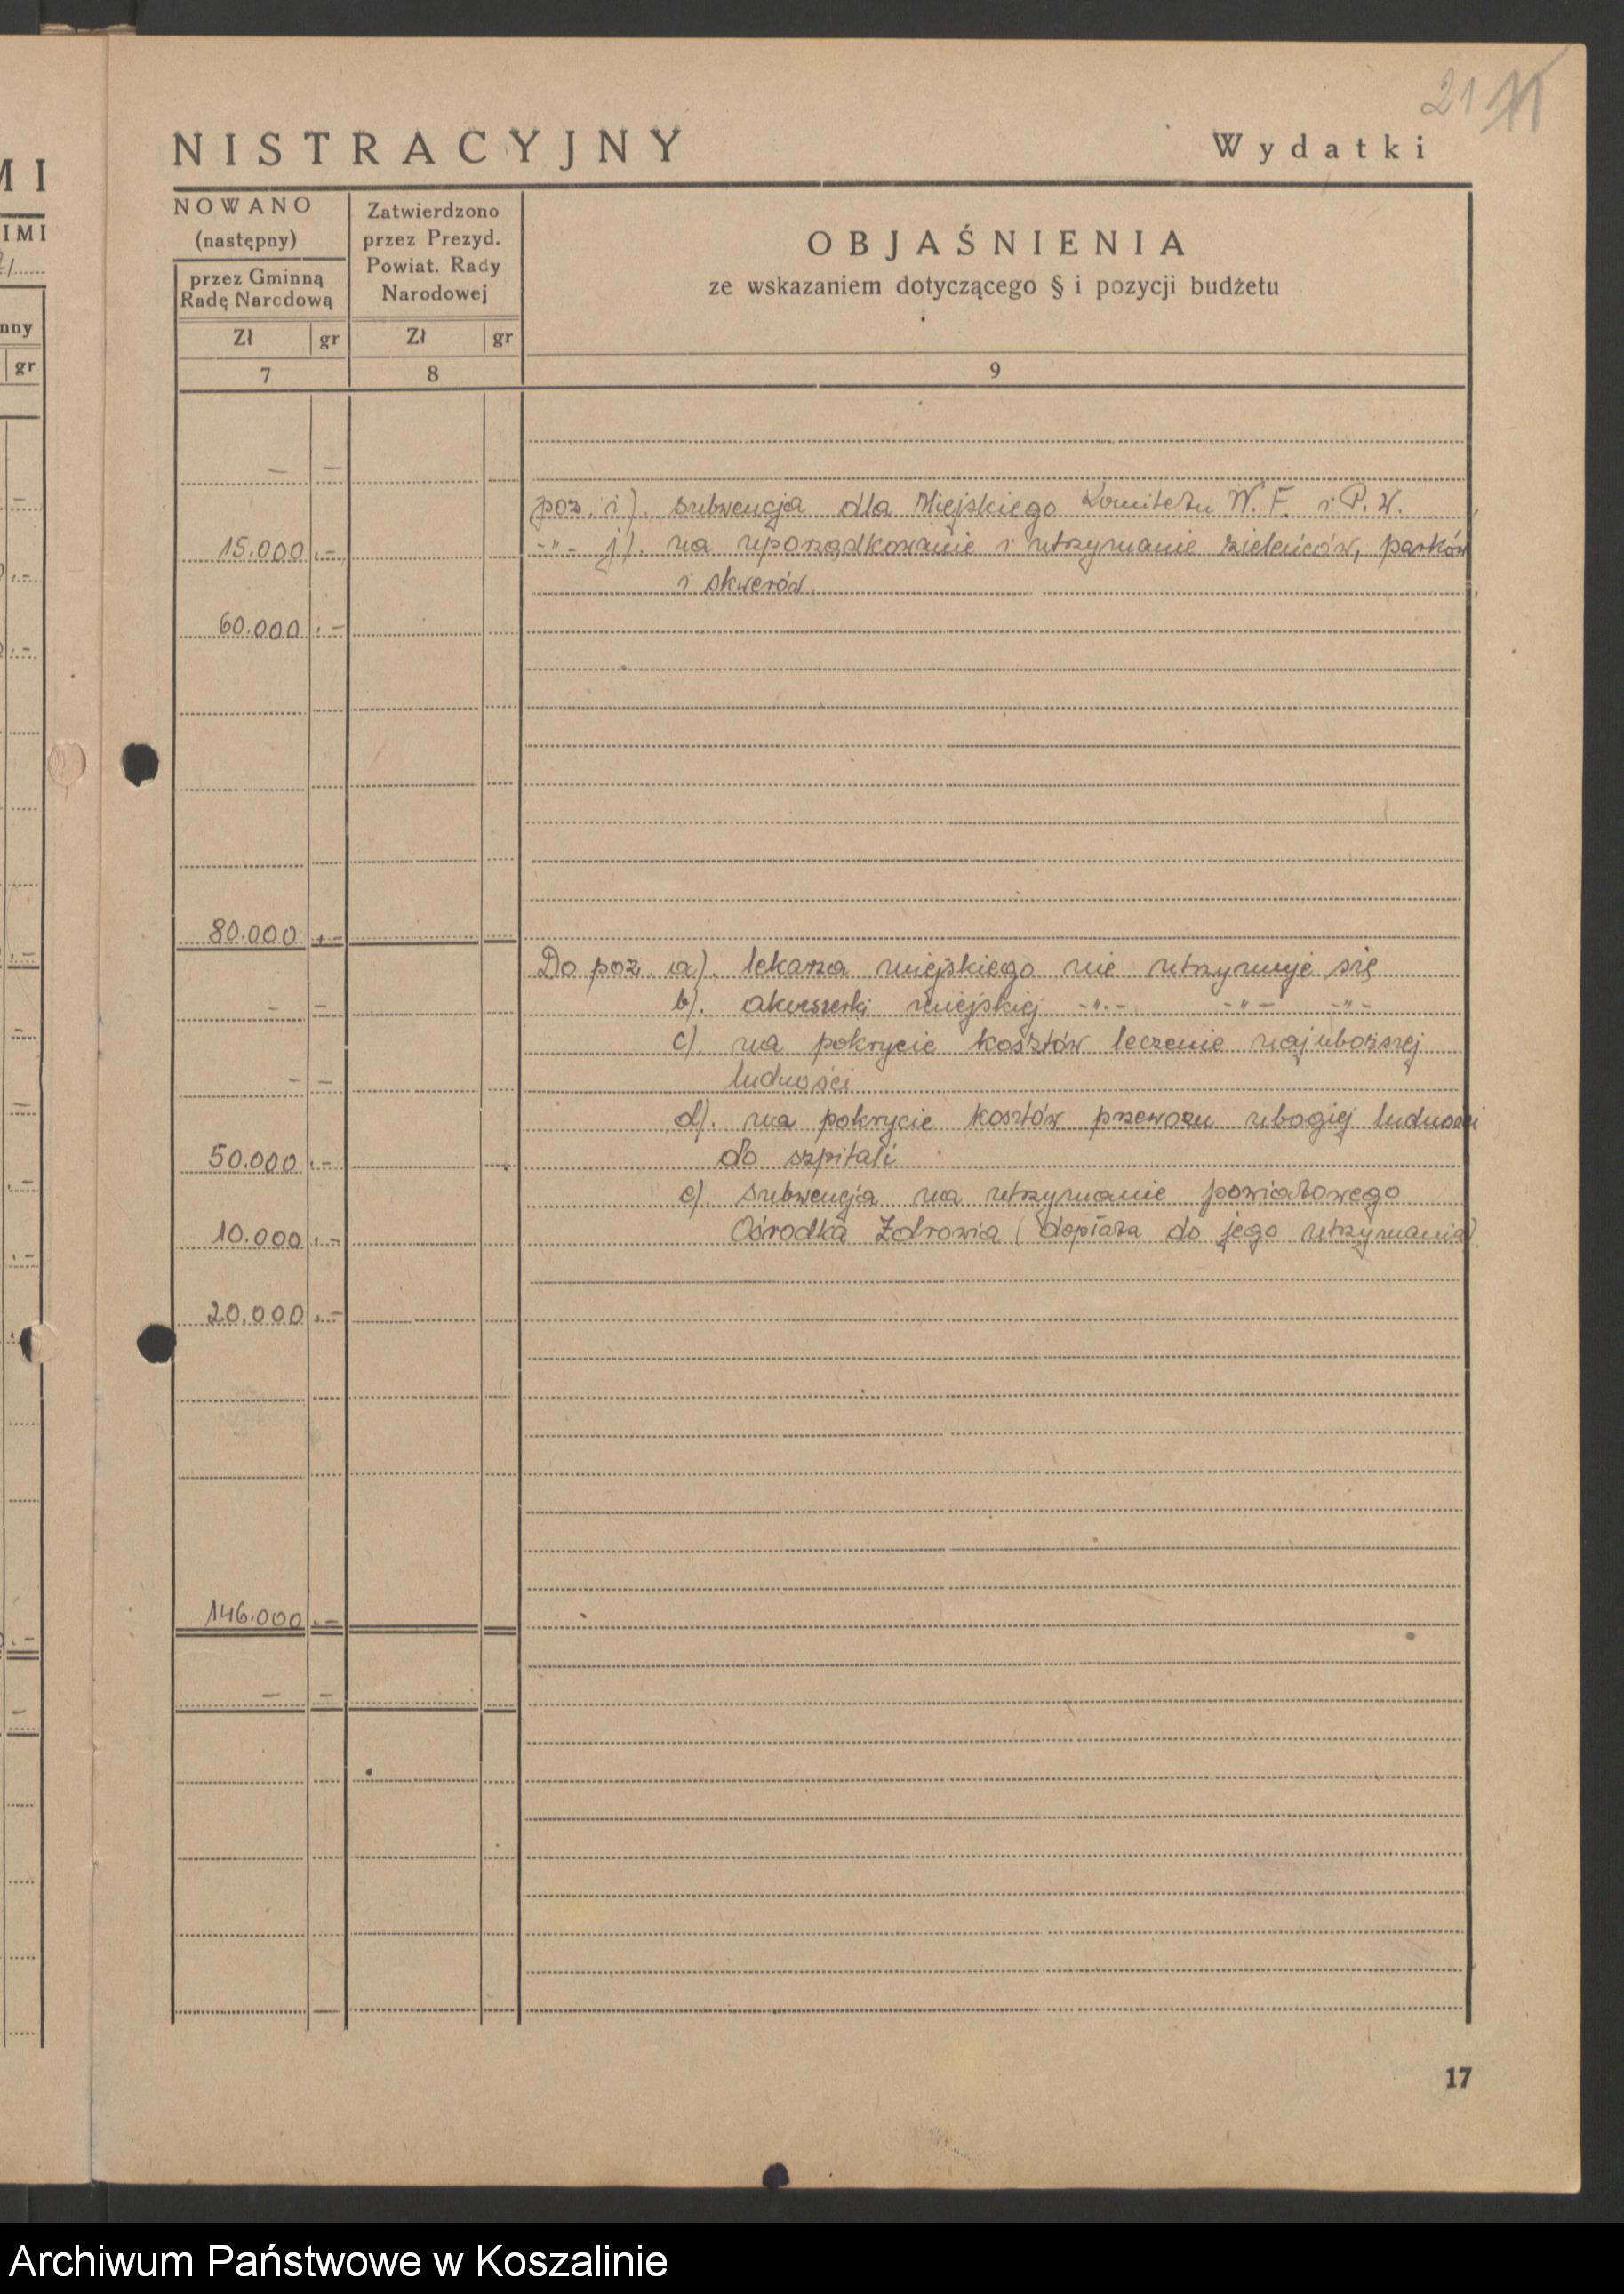 21
NISTRACYJNY
Wydatki
MI
IMI
nny
gr
NOWANO
(następny)
przez Gminną
Radę Narodową
Zł gr
7
Zatwierdzono
przez Prezyd.
Powiat. Rady
Narodowej
Zł gr
8
OBJAŚNIENIA
ze wskazaniem dotyczącego § i pozycji budżetu
9
— —
poz. i). subwencja dla Miejskiego Komitetu W. F. i P. W.
15.000 .—
-"- j). na uporządkowanie i utrzymanie zieleńców, parków
i skwerów.
60.000 .—
80.000 .—
Do poz a). lekarza miejskiego nie utrzymuje się
b). akuszerki miejskiej -"- -"- -"-
— —
c). na pokrycie kosztów leczenie najuboższej
ludności
— —
d). na pokrycie kosztów przewozu ubogiej ludności
do szpitali
50.000 .—
e). subwencja na utrzymanie powiatowego
Ośrodka Zdrowia (dopłata do jego utrzymania).
10.000 .—
20.000 .—
146.000 .—
— —
17
Archiwum Państwowe w Koszalinie